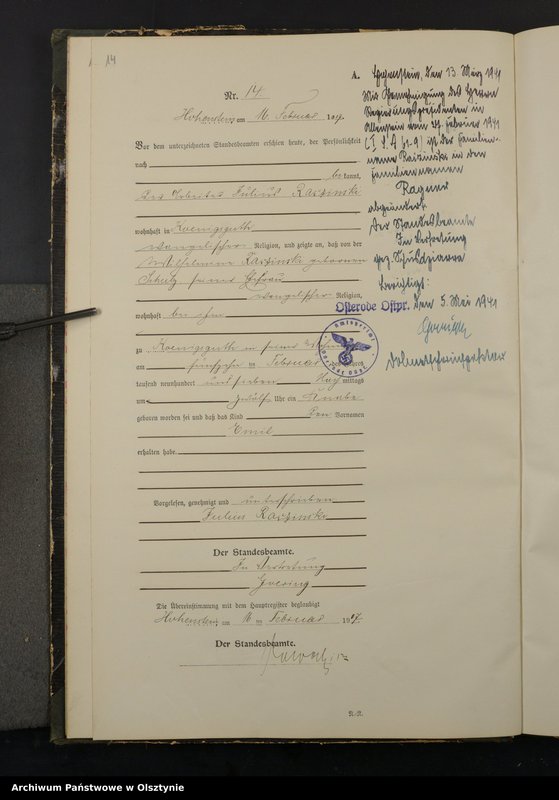 14
Nr. 14
Hohenstein am 16. Februar 1907.
Vor dem unterzeichneten Standesbeamten erschien heute, der Persönlichkeit
nach
be kannt,
der Arbeiter Julius Raizinski
wohnhaft in Koenigsguth
evangelischer Religion, und zeigte an, daß von der
Wilhelmine Raizinski geborenen
seiner Ehefrau
evangelischer Religion,
wohnhaft bei ihm
zu Koenigsguth in seiner Wohnung
am fünfzehn ten Februar des Jahres
tausend neunhundert und sieben Nach mittags
um zwölf Uhr ein Knabe
geboren worden sei und daß das Kind den Vornamen
Emil
erhalten habe.
Vorgelesen, genehmigt und unterschrieben
Julius Raizinski
Der Standesbeamte.
In Vertretung
Goering
Die Übereinstimmung mit dem Hauptregister beglaubigt
Hohenstein am 16. ten Februar 1907.
Der Standesbeamte.
R.-R.
A.
Hohenstein, den 13. März 1941
Mit Genehmigung des Herrn
Regierungspräsidenten in
Allenstein vom 24. Februar 1941
ist der Familien-
name Raizinski in den
Familiennamen
Ragner
abgeändert.
Der Standesbeamte
In Vertretung
gez.
Berichtigt:
Osterode Ostpr. den 5. Mai 1941
Amtsgericht
Archiwum Państwowe w Olsztynie